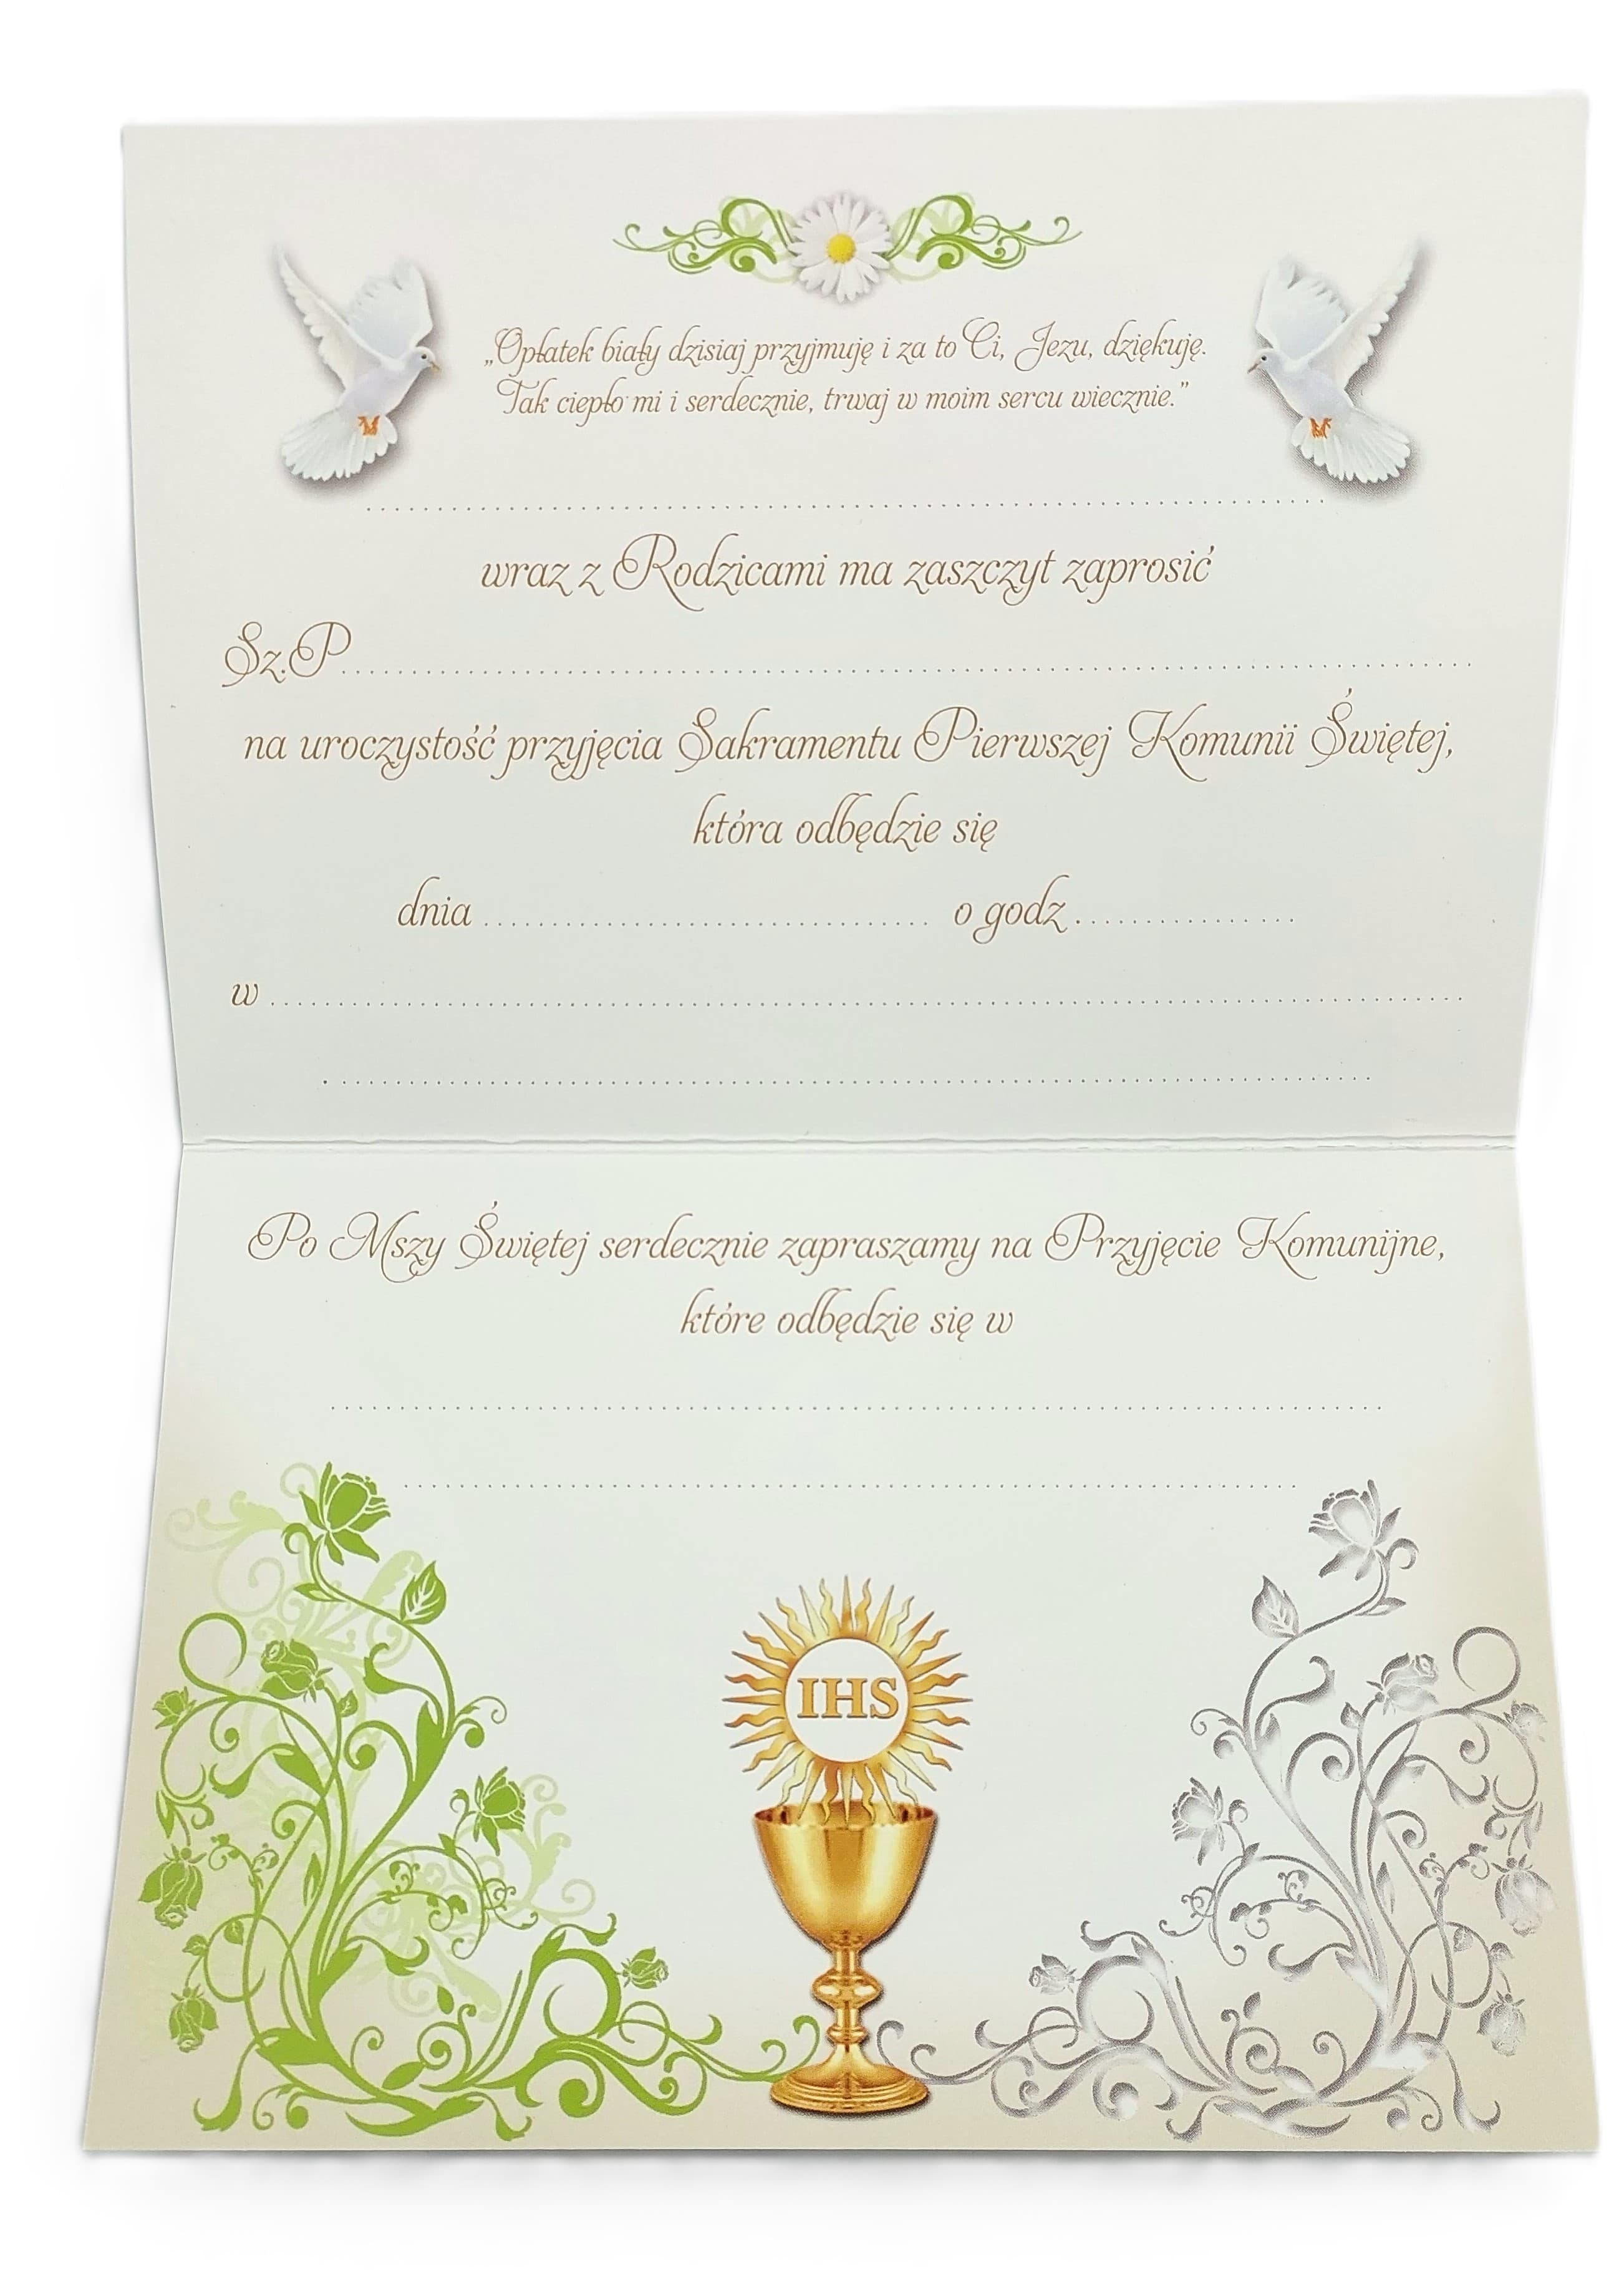 „Opłatek biały dzisiaj przyjmuję i za to Ci, Jezu, dziękuję.
Tak ciepło mi i serdecznie, trwaj w moim sercu wiecznie.”
wraz z Rodzicami ma zaszczyt zaprosić
Sz.P
na uroczystość przyjęcia Sakramentu Pierwszej Komunii Świętej,
która odbędzie się
dnia o godz
w
Po Mszy Świętej serdecznie zapraszamy na Przyjęcie Komunijne,
które odbędzie się w
IHS